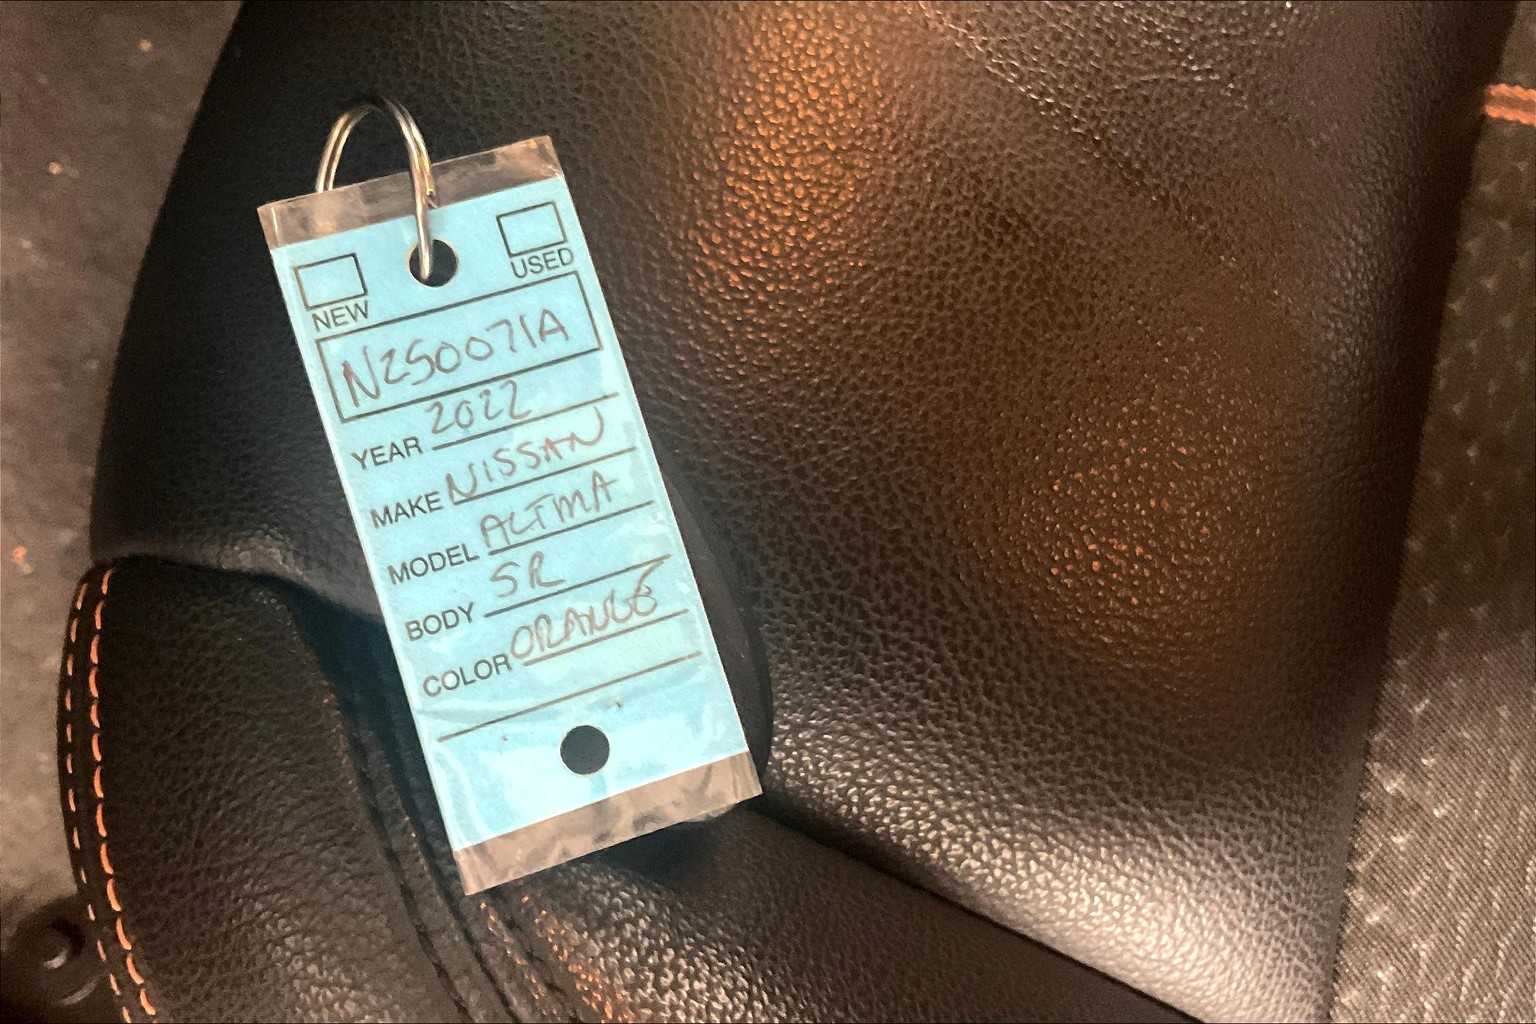 NEW USED
N250071A
YEAR 2022
MAKE NISSAN
MODEL ALTMA
BODY SR
COLOR ORANGE